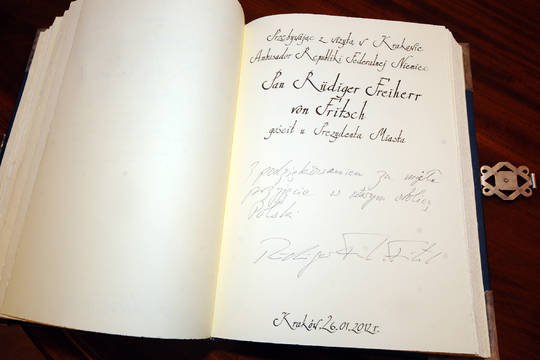 Przebywając z wizytą w Krakowie
Ambasador Republiki Federalnej Niemiec
Pan Rüdiger Freiherr
von Fritsch
gościł u Prezydenta Miasta
Z podziękowaniem za miłe
przyjęcie w
Polski
Kraków, 26.01.2012 r.